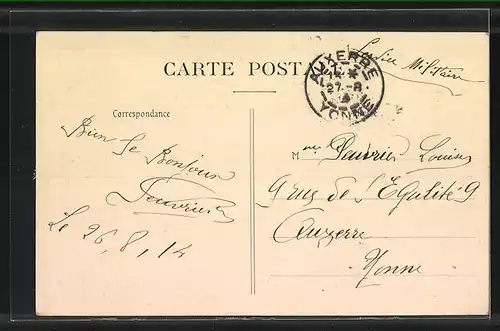 CARTE POSTA
AUXERRE
27-8
YONNE
Service Militaire
Correspondance
Bien le Bonjour
Le 26, 8, 14
M me Louise
9 rue de l'Egalité 9
Auxerre
Yonne